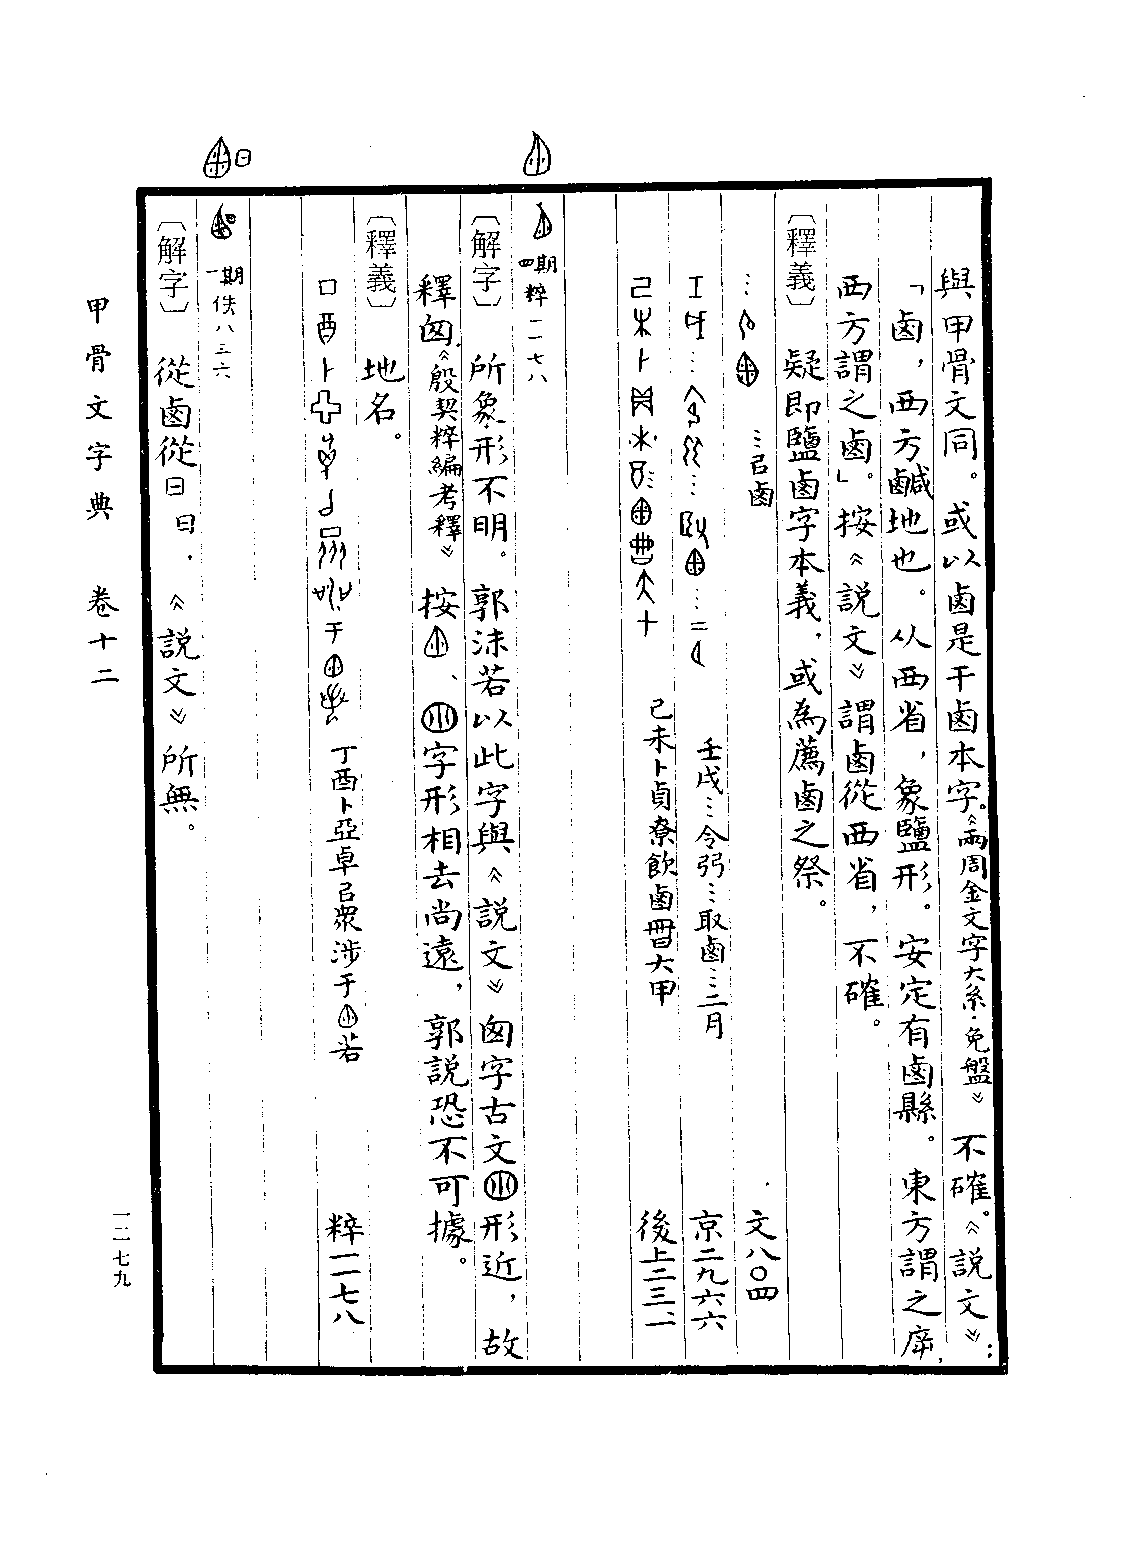 與甲骨文同。或以鹵是干鹵本字。《兩周金文字大系·免盤》不確。《說文》：
「鹵，西方鹹地也。从西省，象鹽形。安定有鹵縣。東方謂之㡿，
西方謂之鹵」。按《說文》謂鹵從西省，不確。
〔釋義〕疑即鹽鹵字本義，或為薦鹵之祭。
…㠯鹵 文八〇四
壬戌…令弜…取鹵…二月 京二九六六
己未卜貞尞飲鹵𠕋大甲 後上二三一一
四期 粹一一七八
〔解字〕所象形不明。郭沫若以此字與《說文》囪字古文形近，故
釋囪《殷契粹編考釋》。按、字形相去尚遠，郭說恐不可據。
〔釋義〕地名。
丁酉卜亞㠯眾涉于若 粹一一七八
一期 佚八三六
〔解字〕從鹵從日曰，《說文》所無。
甲骨文字典 卷十二
一二七九